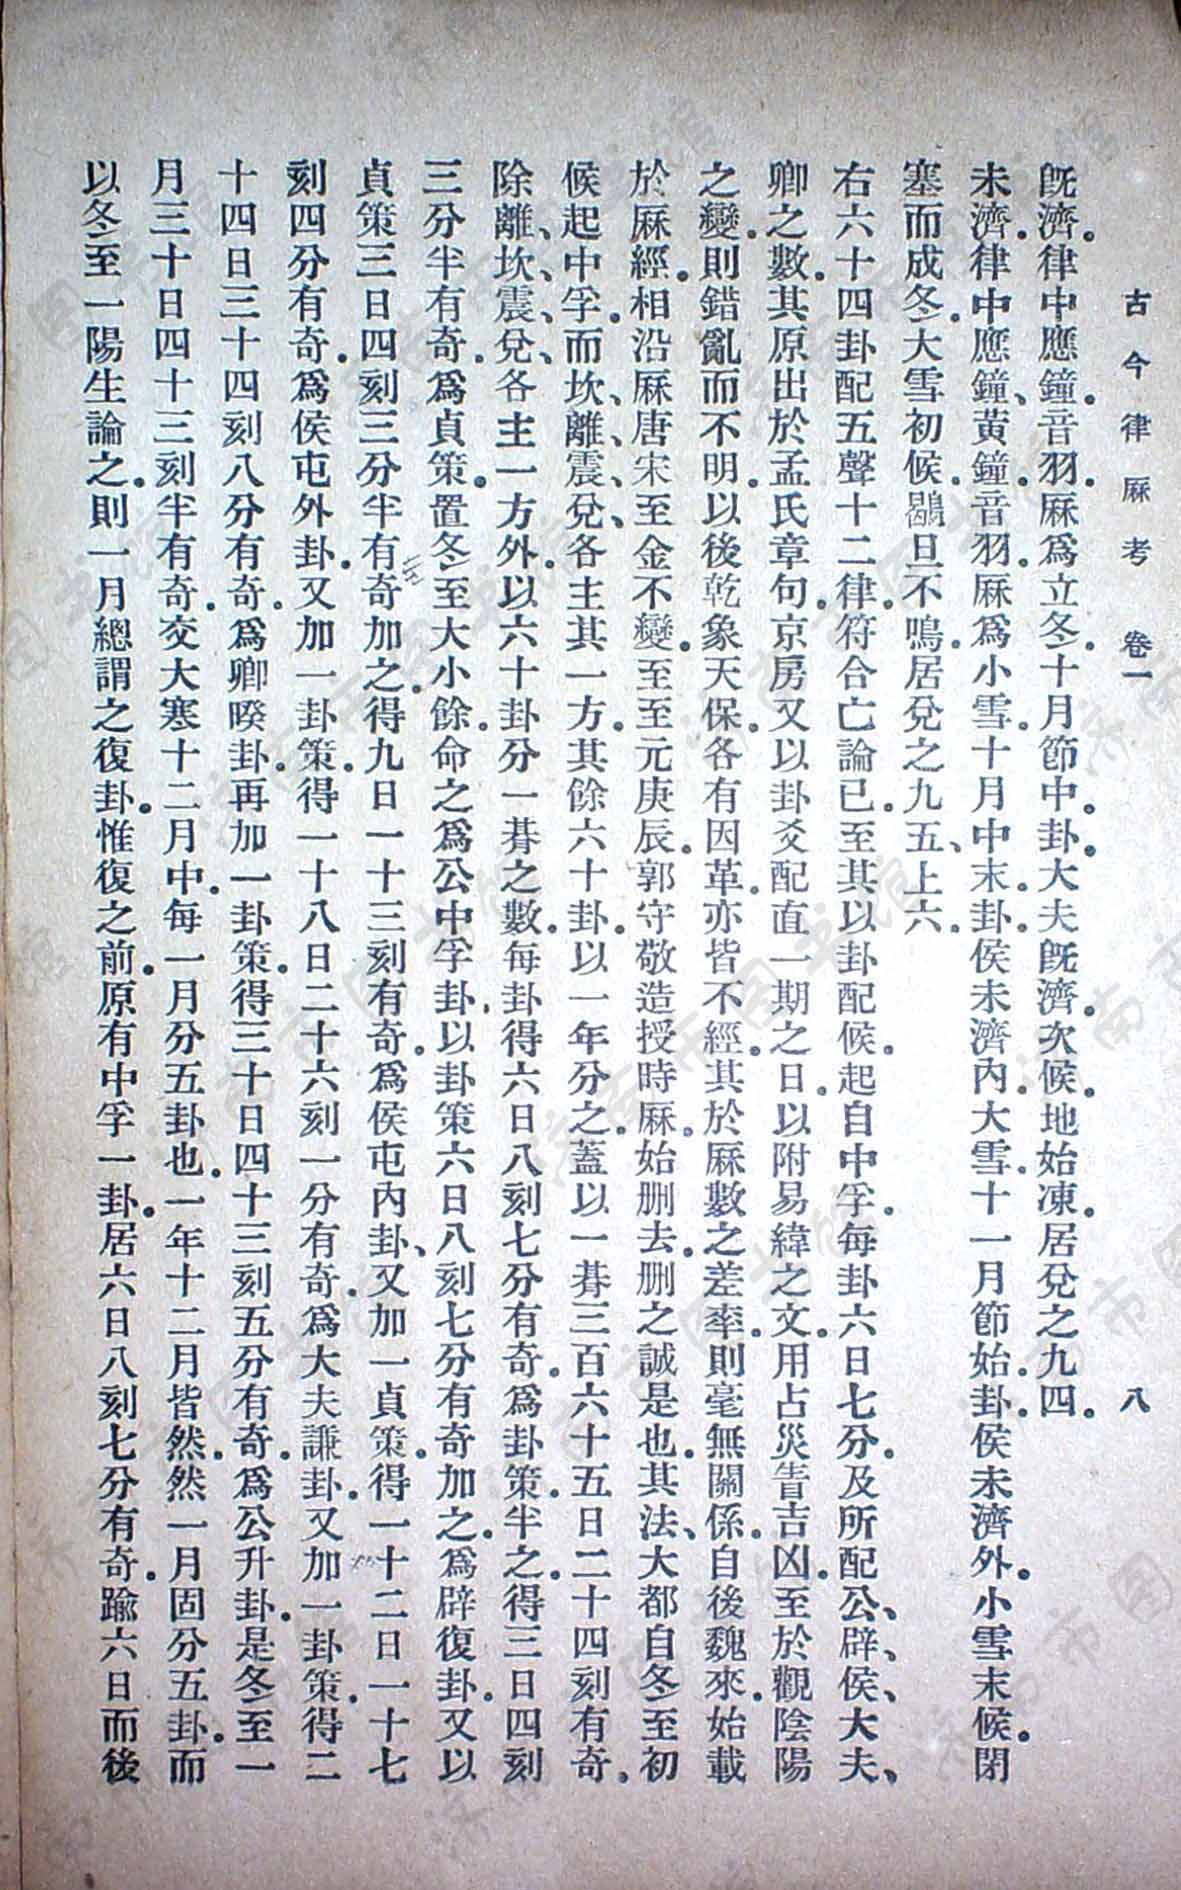 古今律厤考 卷一 八
旣濟。律中應鐘。音羽。厤爲立冬。十月節中。卦。大夫旣濟。次候。地始凍。居兌之九四。
未濟。律中應鐘、黃鐘。音羽。厤爲小雪。十月中末。卦。侯未濟內。大雪。十一月節始。卦。侯未濟外。小雪末候。閉
塞而成冬。大雪初候。鶡旦不鳴。居兌之九五、上六。
右六十四卦配五聲十二律。符合亡論已。至其以卦配候。起自中孚。每卦六日七分。及所配公、辟、侯、大夫、
卿之數。其原出於孟氏章句。京房又以卦爻配直一期之日。以附易緯之文。用占災眚吉凶。至於觀陰陽
之變。則錯亂而不明。以後乾象天保。各有因革。亦皆不經。其於厤數之差率。則毫無關係。自後魏來。始載
於厤經。相沿厤唐宋至金不變。至至元庚辰。郭守敬造授時厤。始刪去。刪之誠是也。其法、大都自冬至初
候起中孚。而坎、離、震、兌、各主其一方。其餘六十卦。以一年分之。蓋以一朞三百六十五日二十四刻有奇。
除離、坎、震、兌、各主一方外。以六十卦分一朞之數。每卦得六日八刻七分有奇。爲卦策。半之。得三日四刻
三分半有奇。爲貞策。置冬至大小餘。命之爲公中孚卦。以卦策六日八刻七分有奇加之。爲辟復卦。又以
貞策三日四刻三分半有奇加之。得九日一十三刻有奇。爲侯屯內卦、又加一貞策。得一十二日一十七
刻四分有奇。爲侯屯外卦。又加一卦策。得一十八日二十六刻一分有奇。爲大夫謙卦。又加一卦策。得二
十四日三十四刻八分有奇。爲卿睽卦。再加一卦策。得三十日四十三刻五分有奇。爲公升卦。是冬至一
月三十日四十三刻半有奇。交大寒十二月中。每一月分五卦也。一年十二月皆然。然一月固分五卦。而
以冬至一陽生論之。則一月總謂之復卦。惟復之前。原有中孚一卦。居六日八刻七分有奇。踰六日而後